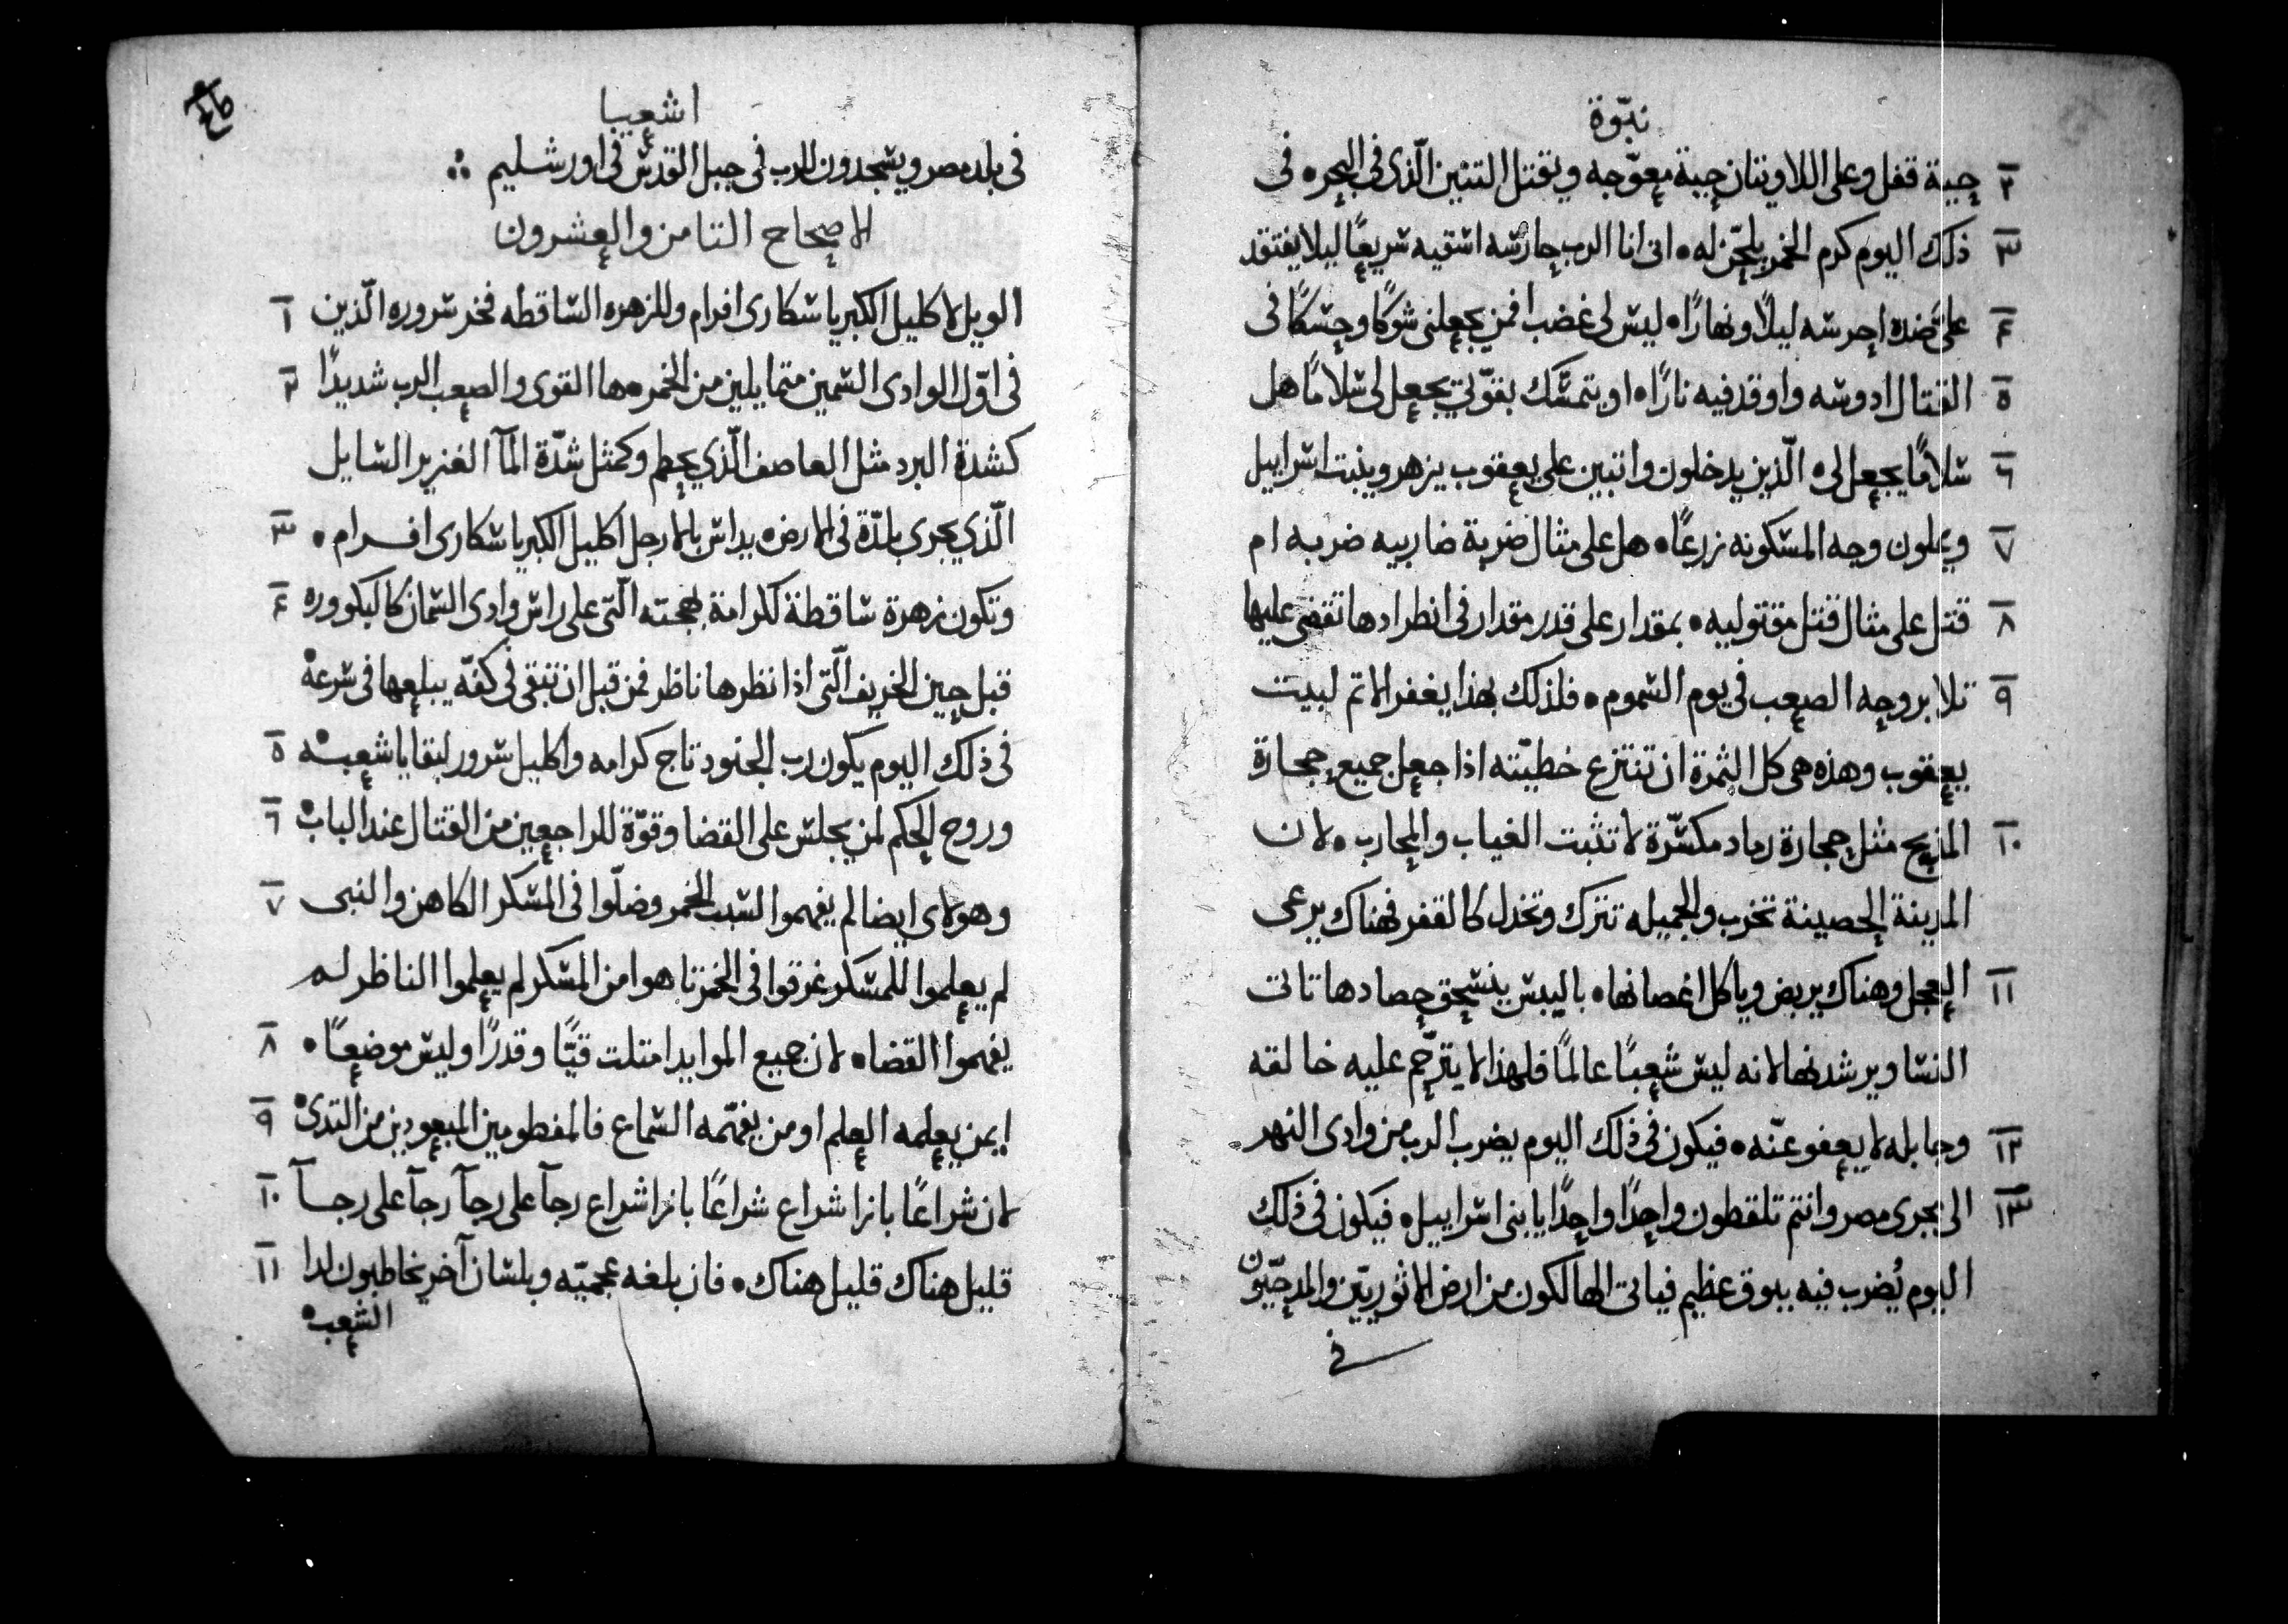 نبّوة
٢ حية قفل وعلى اللاويتان حية معوّجه ويقتل التنين الّذى فى البحر• فى
٣ ذلك اليوم كرم الخمر يلحّن له• انى انا الرب حارسه اسقيه سريعًا ليلا يفتقد
٤ على ضده احرسه ليلًا ونهارًا• ليس لى غضب فمن يجعلنى شوكًا وحسكًا فى
٥ القتال ادوسه واوقد فيه نارًا• او يتمسّك بقوّتي يجعل لى سلامًا هل
٦ سلامًا يجعل لى• الّذين يدخلون واتبين على يعقوب يزهر وينبت اسراييل
٧ ويملون وجه المسكونه زرعًا• هل على مثال ضربة ضاربيه ضربه ام
٨ قتل على مثال قتل مقتوليه• بمقدار على قدر مقدار فى انطرادها تقضى عليها
٩ تلا بروحه الصعب فى يوم السموم• فلذلك بهذا يغفر الاثم لبيت
يعقوب وهذه هى كل الثمرة ان تنتزع خطيّته اذا جعل جميع حجارة
١٠ المذبح مثل حجارة رماد مكسّرة لا تثبت الغياب والمحارب• لان
المدينة الحصينة تخرب والجميله تترك وتخدل كالقفر فهناك يرعى
١١ العجل وهناك يربض وياكل اغصانها• باليبس ينسحق حصادها تاتى
النسا ويرشدنها لانه ليس شعبًا عالمًا فلهذا لا يترحّم عليه خالقه
١٢ وجابله لا يعفو عنّه• فيكون فى ذلك اليوم يضرب الرب من وادى النهر
١٣ الى مجرى مصر وانتم تلقطون واحدًا واحدًا يا بنى اسراييل• فيكون فى ذلك
اليوم يُضرب فيه ببوق عظيم فياتى الهالكون من ارض الاثوريّين والمدحّيون
فى
اشعيا
فى بلد مصر ويسجدون للرب فى جبل القدس فى اورشليم
الاصحاح الثامن والعشرون
١ الويل لاكليل الكبريا سكارى افرام وللزهره الساقطه فخر سروره الّذين
٢ فى اوّل الوادى السمين متمايلين من الخمر• ها القوى والصعب الرب شديدًا
كشدة البرد مثل العاصف الّذي يحطم وكمثل شدّة المآ الغزير السايل
٣ الّذي يجرى بلدّة فى الارض• يداس بالارجل اكليل الكبريا سكارى افرام•
٤ وتكون زهرة ساقطة لكرامة بهجته الّتى على راس وادى السمان كالبكووره
قبل حين الخريف الّتى اذا نظرها ناظر فمن قبل ان تبقى فى كفّه يبلعها فى سرعة•
٥ فى ذلك اليوم يكون رب الجنود تاج كرامه واكليل سرور لبقايا شعبه•
٦ وروح الحكم لمن يجلس على القضا وقوّة للراجعين من القتال عند الباب•
٧ وهولاى ايضا لم يفهموا لسبب الخمر وضلّوا فى المسكر الكاهن والنبى
لم يعلموا للمسكر غرقوا فى الخمر تاهوا من المسكر لم يعلموا الناظر لم
٨ يفهموا القضا• لان جميع الموايد امتلت قيًّا وقدرًا وليس موضعًا•
٩ لمن يعلمه العلم او من يفهّمه السماع فالمفطومين المبعودين من الثدى•
١٠ لان شراعًا بازا شراع شراعًا بازا شراع رجآ على رجآ رجآ على رجآ
١١ قليل هناك قليل هناك• فان بلغه عجميّه وبلسان آخر يخاطبون لدا
الشعب•